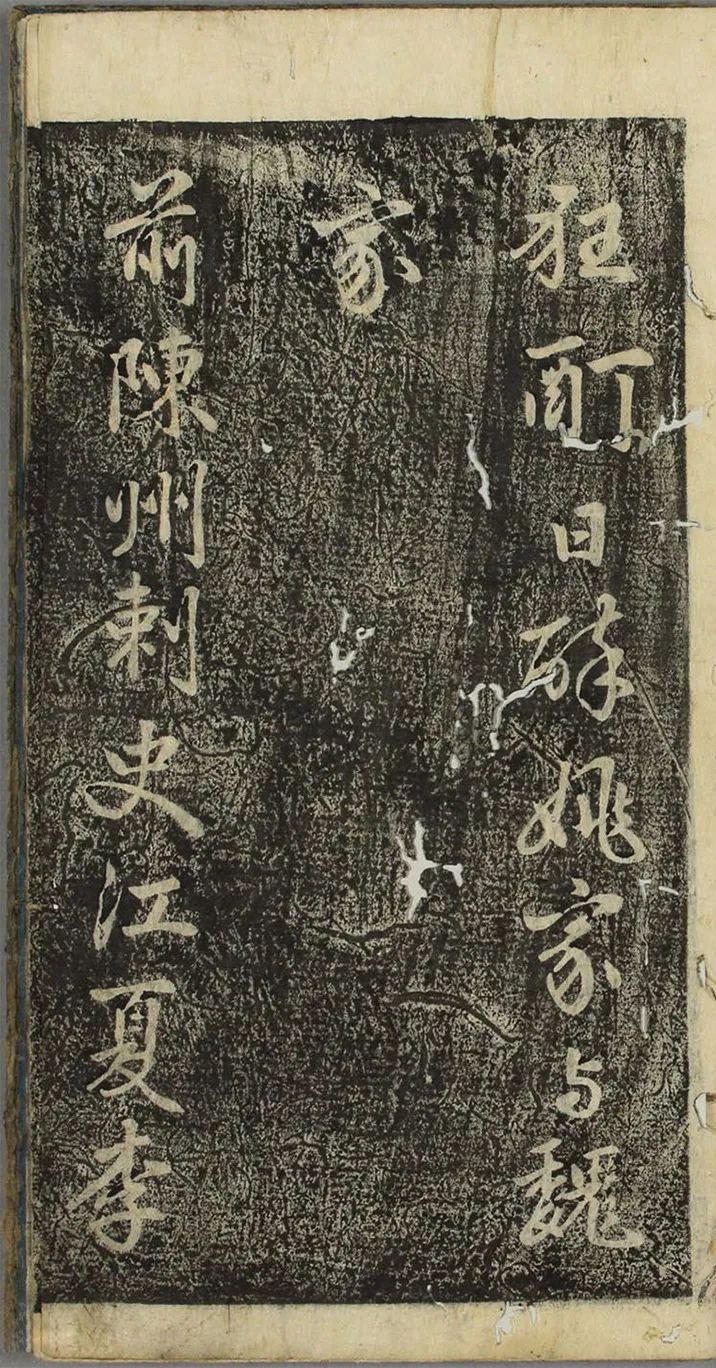 狂酊日醉姚家与魏
家
前陳州刺史江夏李